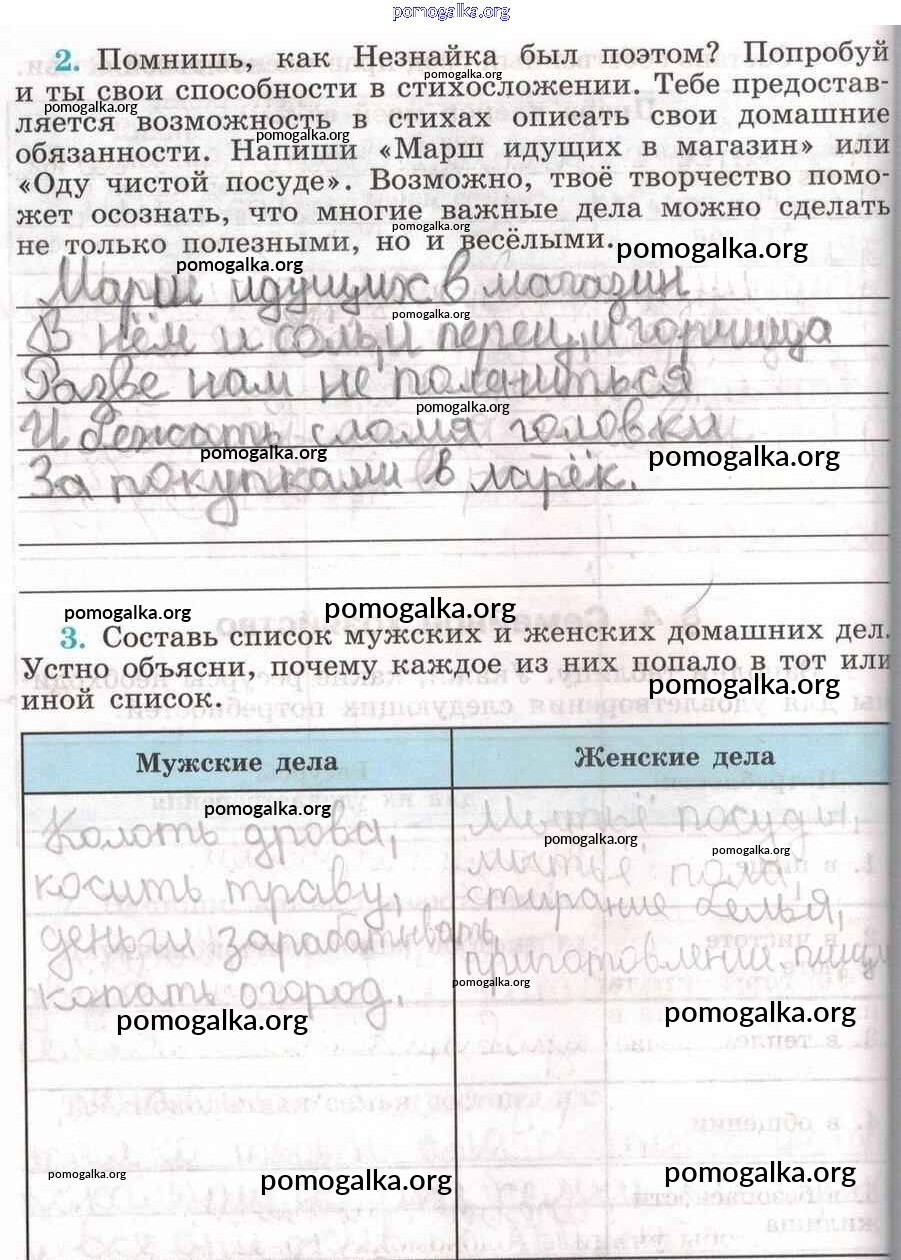 pomogalka.org
2. Помнишь, как Незнайка был поэтом? Попробуй
pomogalka.org
и ты свои способности в стихосложении. Тебе предостав-
ляется возможность в стихах описать свои домашние
pomogalka.org
обязанности. Напиши «Марш идущих в магазин» или
«Оду чистой посуде». Возможно, твоё творчество помо-
жет осознать, что многие важные дела можно сделать
pomogalka.org
не только полезными, но и весёлыми.
pomogalka.org
pomogalka.org
Марш идущих в магазин
pomogalka.org
В нём и соль, и перец, и горчица
Разве нам не полениться
pomogalka.org
И бежать сломя головки
pomogalka.org
pomogalka.org
За покупками в ларёк.
pomogalka.org
pomogalka.org
3. Составь список мужских и женских домашних дел.
Устно объясни, почему каждое из них попало в тот или
pomogalka.org
иной список.
Мужские дела
Женские дела
pomogalka.org
Колоть дрова,
Мытьё посуды,
pomogalka.org
pomogalka.org
косить траву,
мытьё пола
деньги зарабатывать
стирание белья,
копать огород.
приготовление пищи
pomogalka.org
pomogalka.org
pomogalka.org
pomogalka.org
pomogalka.org
pomogalka.org